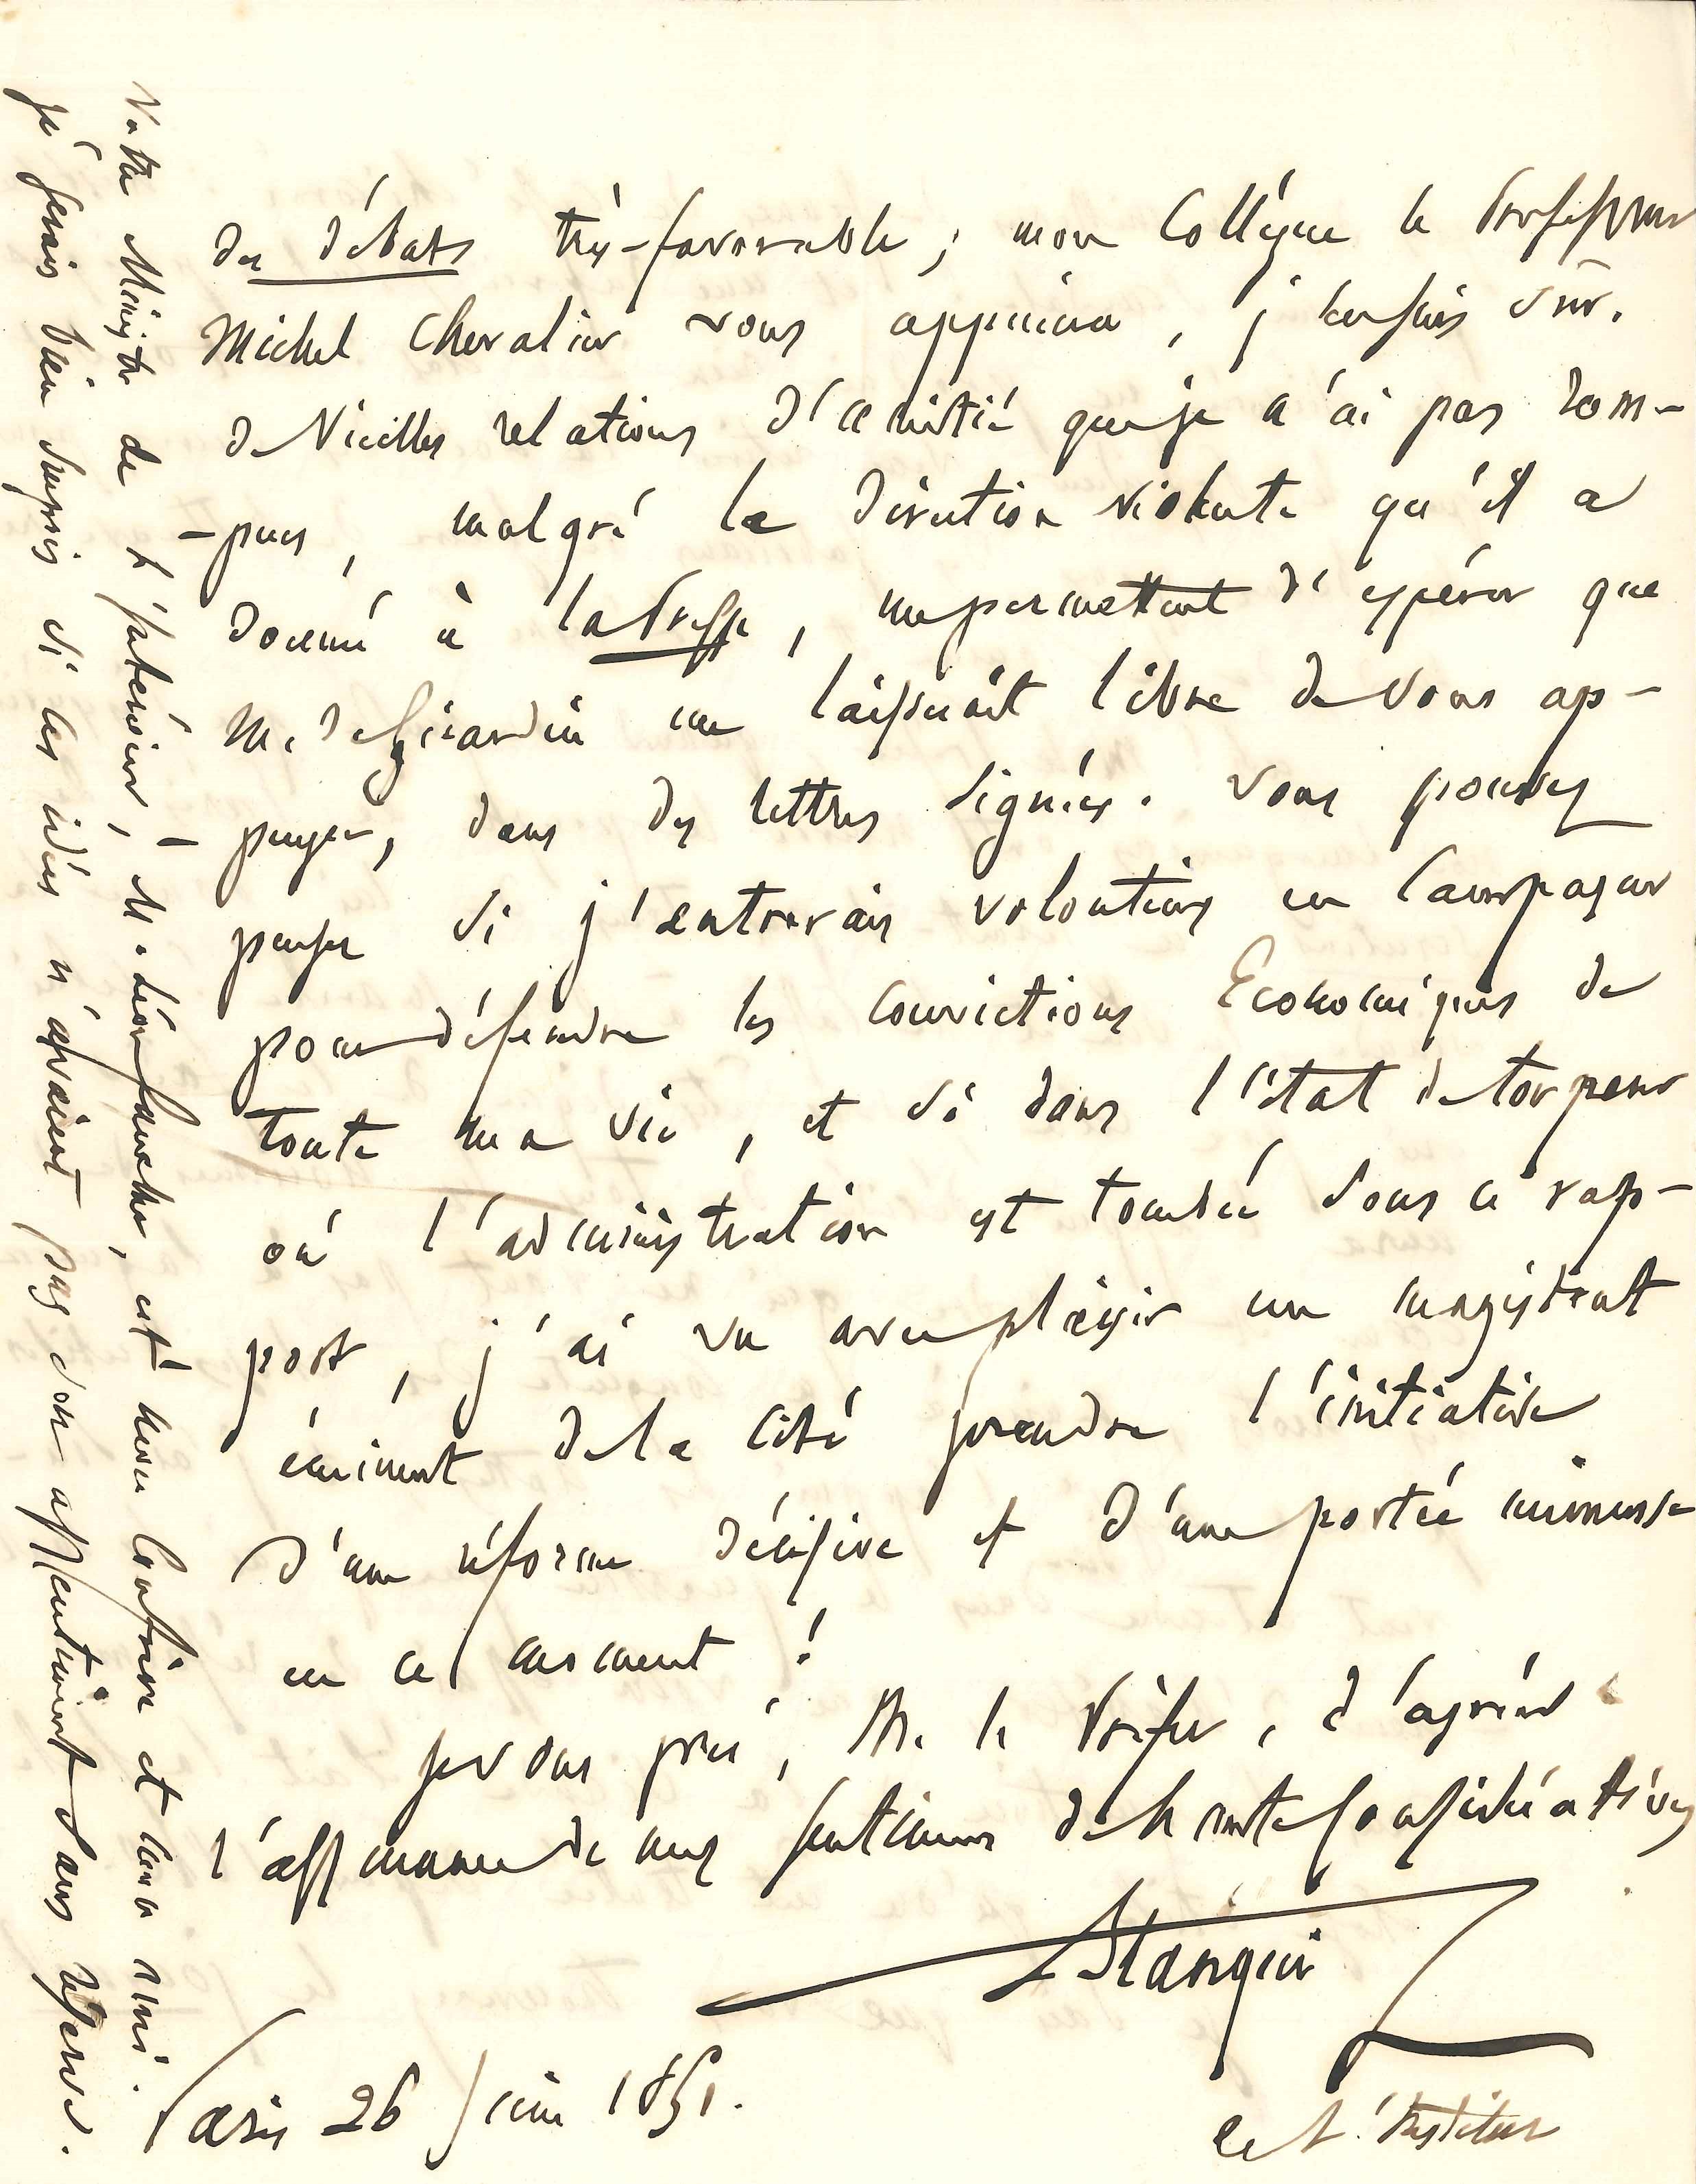 des débats très-favorable ; mon Collègue le Professeur
Michel Chevalier vous appuiera, j'en suis sûr.
de vieilles relations d'amitié que je n'ai pas rom-
-pues, malgré la direction violente qu'il a
donné à la Presse, me permettent d'espérer que
M. de Girardin me laisserait libre de vous ap-
puyer, dans des lettres signées. Vous pouvez
penser si j'entrerais volontiers en Campagne
pour défendre les Convictions Economiques de
toute ma vie, et si dans l'état de torpeur
où l'administration est tombée sous ce rap-
port, j'ai vu avec plaisir un magistrat
éminent de la Cité prendre l'initiative
d'une réforme décisive et d'une portée immense
en ce moment !
Je vous prie, M. le Préfet, d'agréer
l'assurance de mes sentimens de haute Considération
Blanqui
de l'Institut
Paris 26 Juin 1851.
Votre Ministre de l'Intérieur, M. Léon faucher, est mon Confrère et mon ami.
je serais bien surpris si ces idées n'avaient pas son assentiment sans réserve.